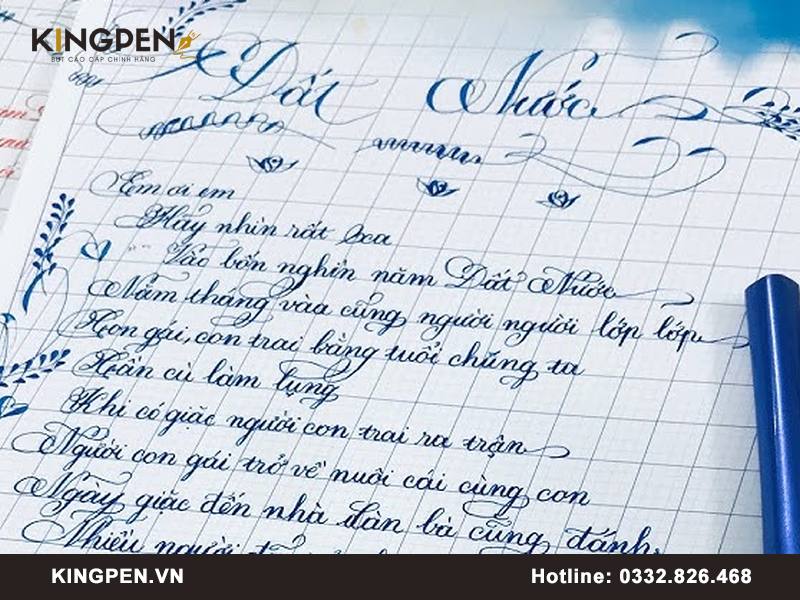 KINGPEN
BÚT CAO CẤP CHÍNH HÃNG
Đất Nước
Em ơi em
Hãy nhìn rất xa
Vào bốn nghìn năm Đất Nước
Năm tháng vào cũng người người lớp lớp
Con gái, con trai bằng tuổi chúng ta
Cần cù làm lụng
Khi có giặc người con trai ra trận
Người con gái trở về nuôi cái cùng con
Ngày giặc đến nhà đàn bà cũng đánh
Nhiều người
KINGPEN.VN
Hotline: 0332.826.468